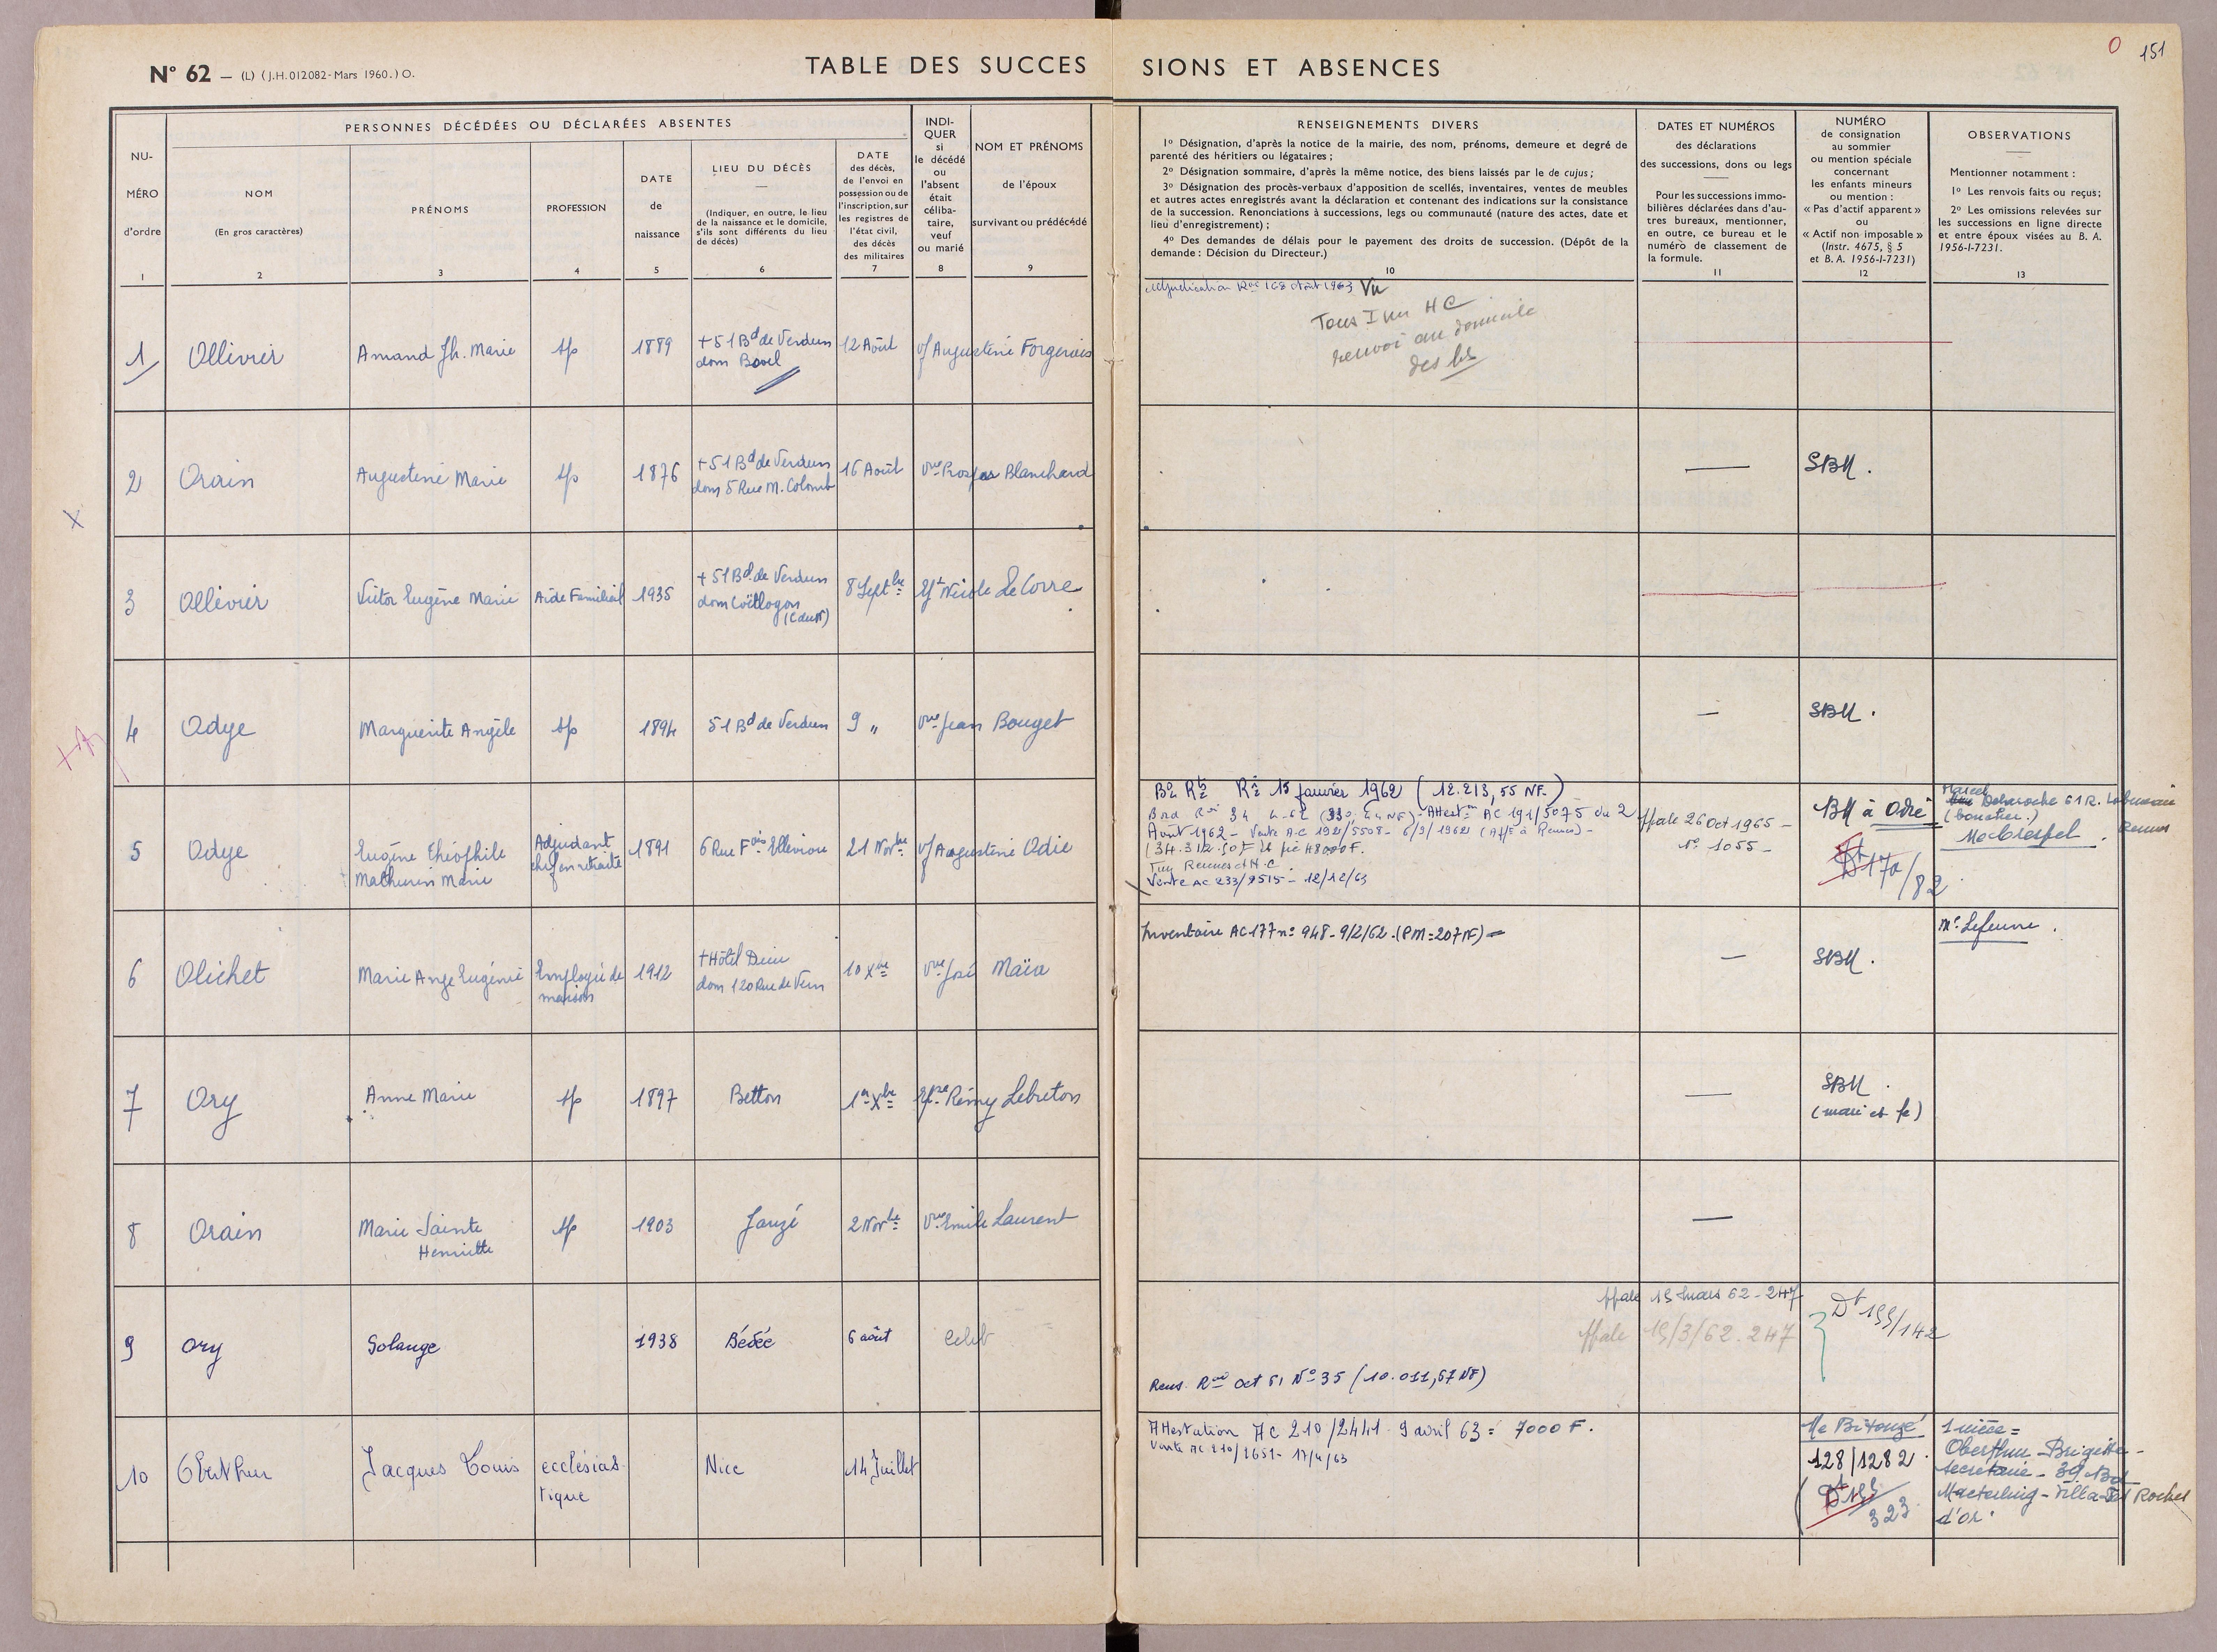 O 151
N° 62 — (L) (J.H. 012082 - Mars 1960.) O.
TABLE DES SUCCESSIONS ET ABSENCES
PERSONNES DÉCÉDÉES OU DÉCLARÉES ABSENTES
NU-
MÉRO
d'ordre
1
NOM
(En gros caractères)
2
PRÉNOMS
3
PROFESSION
4
DATE
de
naissance
5
LIEU DU DÉCÈS
(Indiquer, en outre, le lieu
de la naissance et le domicile,
s'ils sont différents du lieu
de décès)
6
DATE
des décès,
de l'envoi en
possession ou de
l'inscription, sur
les registres de
l'état civil,
des décès
des militaires
7
INDI-
QUER
si
le décédé
ou
l'absent
était
céliba-
taire,
veuf
ou marié
8
NOM ET PRÉNOMS
de l'époux
survivant ou prédécédé
9
RENSEIGNEMENTS DIVERS
1° Désignation, d'après la notice de la mairie, des nom, prénoms, demeure et degré de
parenté des héritiers ou légataires ;
2° Désignation sommaire, d'après la même notice, des biens laissés par le de cujus ;
3° Désignation des procès-verbaux d'apposition de scellés, inventaires, ventes de meubles
et autres actes enregistrés avant la déclaration et contenant des indications sur la consistance
de la succession. Renonciations à successions, legs ou communauté (nature des actes, date et
lieu d'enregistrement) ;
4° Des demandes de délais pour le payement des droits de succession. (Dépôt de la
demande : Décision du Directeur.)
10
DATES ET NUMÉROS
des déclarations
des successions, dons ou legs
Pour les successions immo-
bilières déclarées dans d'au-
tres bureaux, mentionner,
en outre, ce bureau et le
numéro de classement de
la formule.
11
NUMÉRO
de consignation
au sommier
ou mention spéciale
concernant
les enfants mineurs
ou mention :
« Pas d'actif apparent »
ou
« Actif non imposable »
(Instr. 4675, § 5
et B. A. 1956-I-7231)
12
OBSERVATIONS
Mentionner notamment :
1° Les renvois faits ou reçus ;
2° Les omissions relevées sur
les successions en ligne directe
et entre époux visées au B. A.
1956-I-7231.
13
1 Ollivier Amand Jh. Marie sp 1889 + 51 Bd de Verdun 12 Août vf Augustine Forgerais
dom Bovel
Adjudication 1963 Vu
Tous Imm HC
renvoi au domicile
des
2 Orain Augustine Marie sp 1876 + 51 Bd de Verdun 16 Août vve Prosper Blanchard — SBM.
dom 5 Rue M. Colomb
X
3 Ollivier Victor Eugène Marie Aide Familial 1935 + 51 Bd de Verdun 8 Septbre Nicole Le Corre
dom Coëtlogon
(C du N)
4 Odye Marguerite Angèle sp 1894 51 Bd de Verdun 9 " vve Jean Bouget — SBM.
5 Odye Eugène Théophile Adjudant 1891 6 Rue Fois Elleviou 21 Novbre vf Augustine Odie
Mathurin Marie chef en retraite
15 janvier 1962 (12.213,55 NF.)
Attestn AC 191/5075 du 2
Août 1962 - Vente A.C 192/5508 - 6/9/1962
Imm Rennes et H.C.
Vente AC 233/9515 - 12/12/63
26 Oct 1965 -
N° 1055 -
BM à Odie
170/82
Marcel Delaroche 61 R.
Me Crespel. Rennes
6 Olichet Marie Ange Eugénie Employée de 1912 + Hôtel Dieu 10 Xbre vve José Maïa
maison dom 120 Rue de Vern
Inventaire AC 177 n° 948 - 9/2/62. (PM = 207 NF) — — SBM. Me Lefeuvre.
7 Ory Anne Marie sp 1897 Betton 1er Xbre Rémy Lebreton — SBM.
(mari et fe)
8 Orain Marie Sainte sp 1903 Janzé 2 Novbre vve Emile Laurent —
Henriette
9 Ory Solange 1938 Bédée 6 août Celib
19 mars 62 - 247 Dt 199/142
19/3/62. 247
Rens. Oct 61 N° 35 (10.011,67 NF)
10 Oberthur Jacques Louis ecclésias- Nice 14 Juillet
tique
Attestation AC 210/2441 9 avril 63 = 7000 F.
Vente AC 210/2651 - 17/4/63
128/1282.
323
1 nièce =
Oberthur Brigitte -
secrétaire - 39 Bd
Maeterling - Villa Roches
d'or.